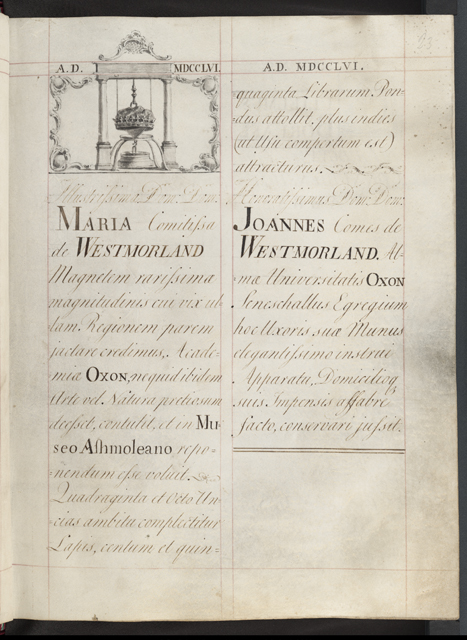 A.D. MDCCLVI.
Illustrissima Dom. Dom.
MARIA Comitissa
de WESTMORLAND
Magnetem rarissimæ
magnitudinis cui vix ul-
lam Regionem parem
jactare credimus, Acade-
miæ OXON, nequid ibidem
Arte vel Natura pretiosum
deesset, contulit, et in Mu-
seo Aſhmoleano repo=
=nendum esse voluit.
Quadraginta et Octo Un-
cias ambitu complectitur
Lapis, centum et quin=
A.D. MDCCLVI.
quaginta Librarum Pon-
dus attollit, plus indies
(ut Usu compertum est)
attracturus.
Honoratissimus Dom. Dom.
JOANNES Comes de
WESTMORLAND, Al-
mæ Universitatis OXON
Seneschallus Egregium
hoc Uxoris suæ Munus
elegantissimo instrui
Apparatu, Domicilioq;
suis Impensis affabre
facto, conservari jussit.